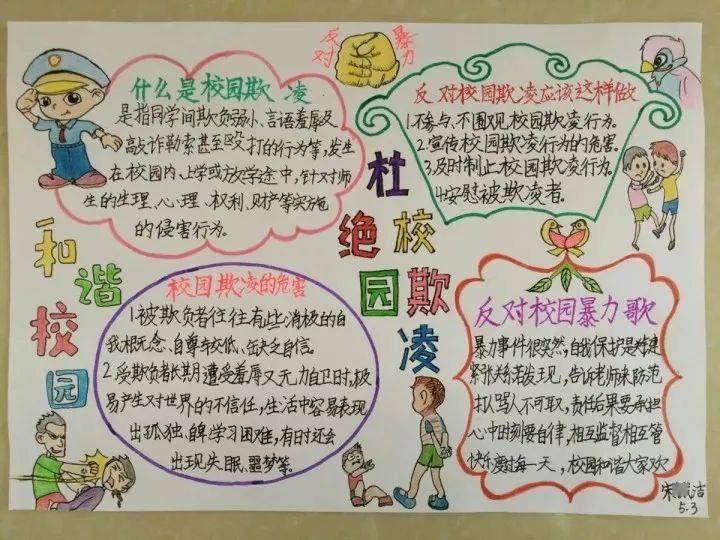 反对
暴力
什么是校园欺凌
是指同学间欺负弱小、言语羞辱及
敲诈勒索甚至殴打的行为等,发生
在校园内、上学或放学途中,针对师
生的生理、心理、权利、财产等实施
的侵害行为。
反对校园欺凌应该这样做
1.不参与、不围观校园欺凌行为。
2.宣传校园欺凌行为的危害。
3.及时制止校园欺凌行为。
4.安慰被欺凌者。
杜绝校园欺凌
和谐校园
校园欺凌的危害
1.被欺负者往往有些消极的自
我概念、自尊较低、缺乏自信。
2.受欺负者长期遭受羞辱又无力自卫时,极
易产生对世界的不信任,生活中容易表现
出孤独、自卑、学习困难,有时还会
出现失眠、噩梦等。
反对校园暴力歌
暴力事件很突然,自我保护是关键
紧张关系若发现,告诉老师来防范
打人骂人不可取,责任后果要承担
心中时刻要自律,相互监督相互管
快乐度过每一天,校园和谐大家欢
宋 洁
5.3